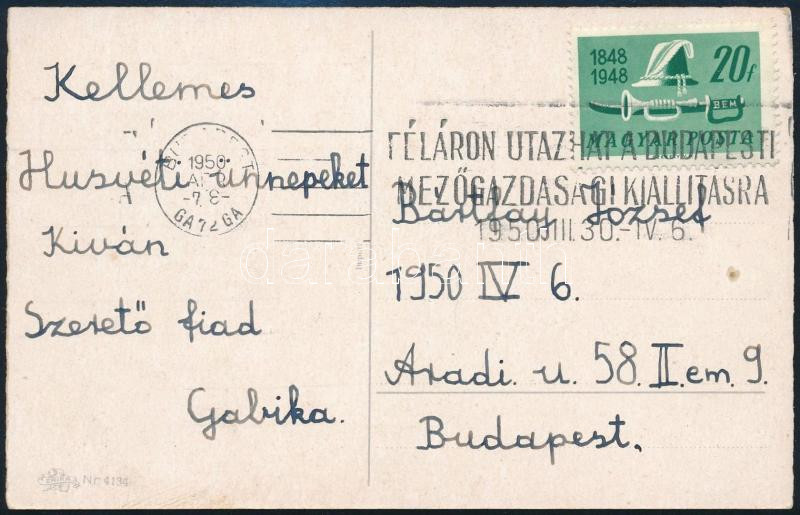 Kellemes
Husvéti ünnepeket
Kiván
Szerető fiad
Gabika.
1848
1948
20f
BEM
MAGYAR POSTA
BUDAPEST
1950
-7.8-
GA72GA
FÉLÁRON UTAZHAT A BUDAPESTI
MEZŐGAZDASÁGI KIÁLLITÁSRA
1950.III.30.-IV.6.
Bártfay József
1950 IV 6.
Aradi. u. 58. II. em. 9.
Budapest.
Nr 4134
darabanth